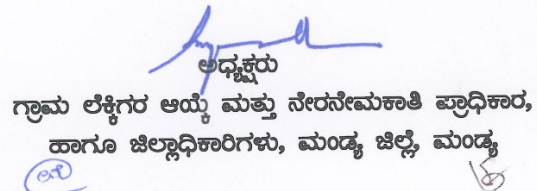 ಅಧ್ಯಕ್ಷರು
ಗ್ರಾಮ ಲೆಕ್ಕಿಗರ ಆಯ್ಕೆ ಮತ್ತು ನೇರನೇಮಕಾತಿ ಪ್ರಾಧಿಕಾರ,
ಹಾಗೂ ಜಿಲ್ಲಾಧಿಕಾರಿಗಳು, ಮಂಡ್ಯ ಜಿಲ್ಲೆ, ಮಂಡ್ಯ